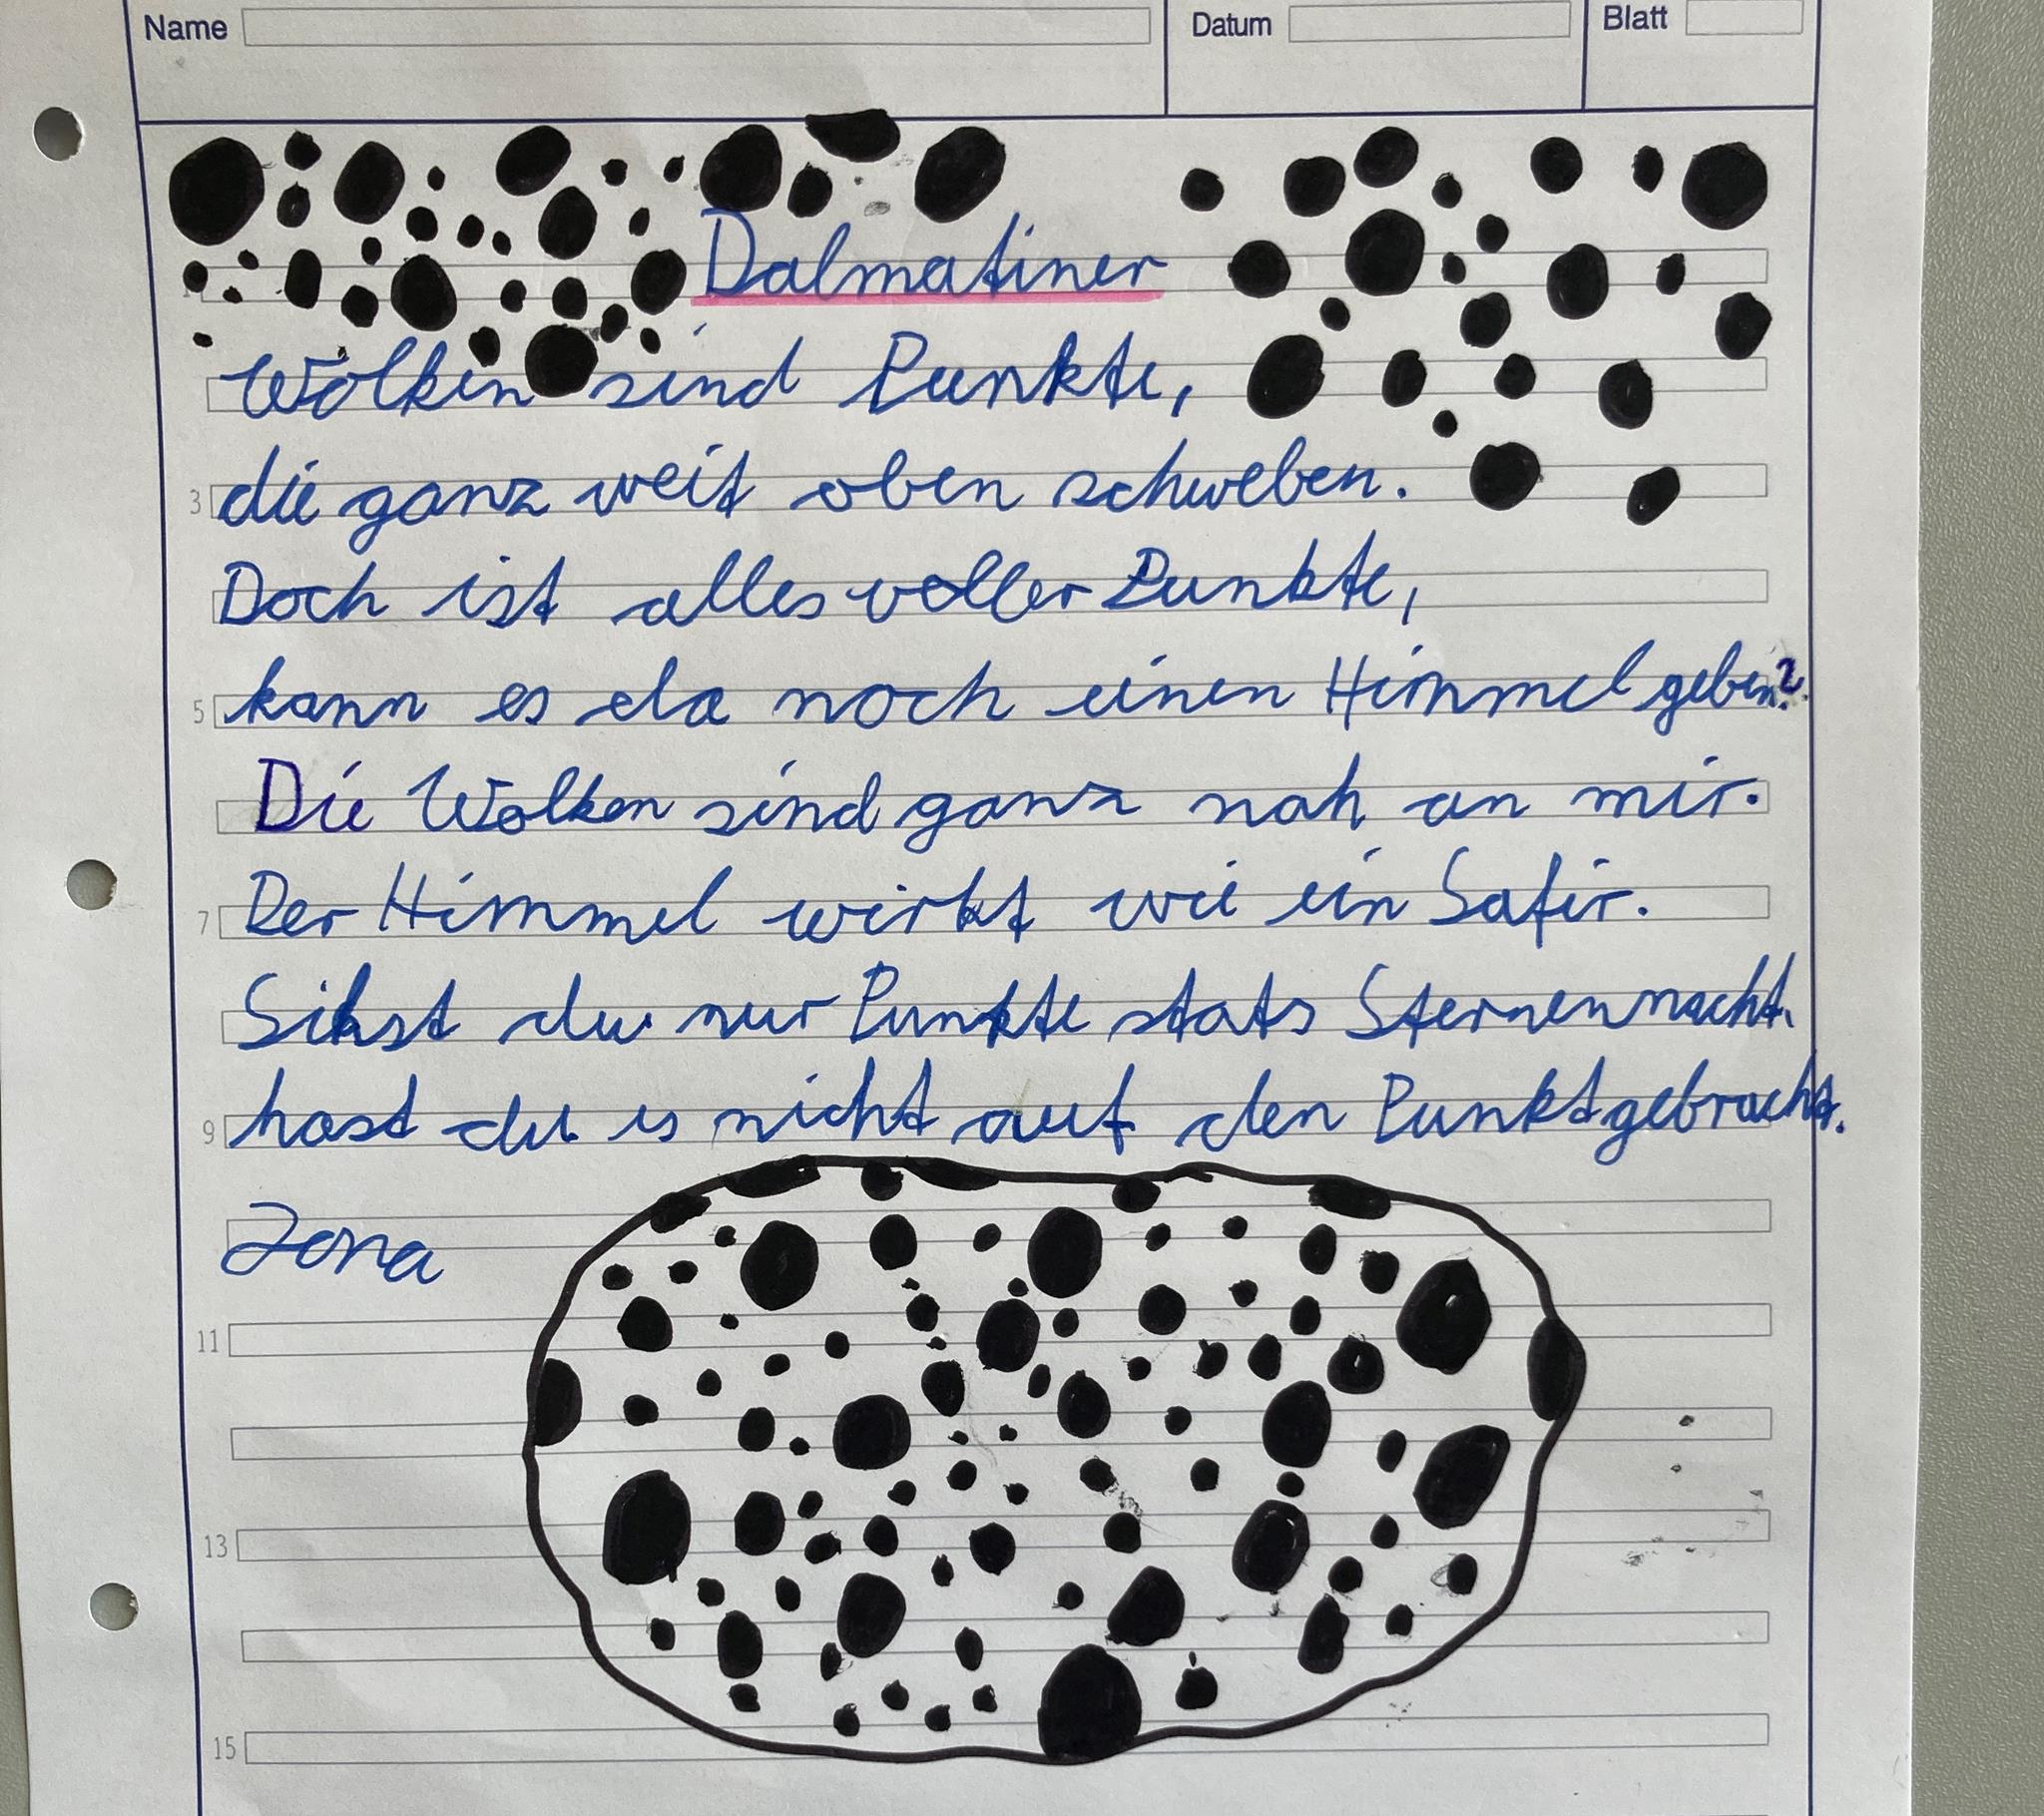 Name Datum Blatt
Dalmatiner
Wolken sind Punkte,
3 die ganz weit oben schweben.
Doch ist alles voller Punkte,
5 kann es da noch einen Himmel geben?
Die Wolken sind ganz nah an mir.
7 Der Himmel wirkt wie ein Safir.
Sihst du nur Punkte stats Sternennacht,
9 hast du es nicht auf den Punkt gebracht.
Jona
11
13
15